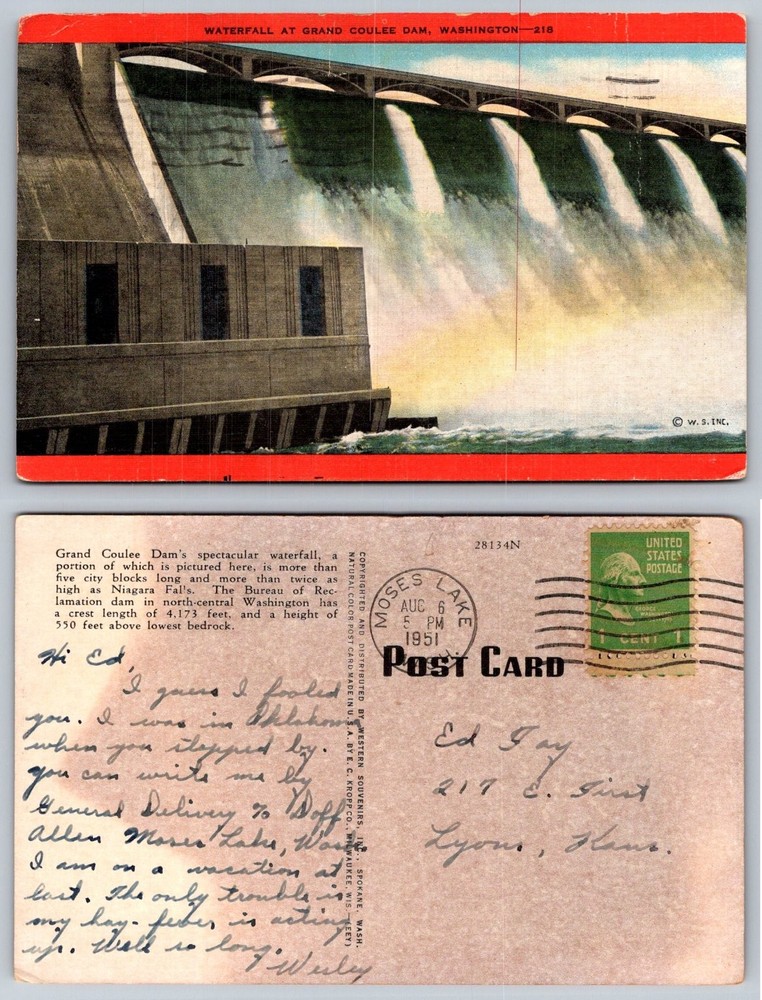 WATERFALL AT GRAND COULEE DAM, WASHINGTON—218
© W. S. INC.
Grand Coulee Dam's spectacular waterfall, a
portion of which is pictured here, is more than
five city blocks long and more than twice as
high as Niagara Fal's. The Bureau of Rec-
lamation dam in north-central Washington has
a crest length of 4,173 feet, and a height of
550 feet above lowest bedrock.
Hi Ed,
I guess I fooled
you. I was in Oklahoma
when you stopped by.
you can write me by
General Delivery % Doff
Allen Moses Lake, Wash
I am on a vacation at
last. The only trouble is
my hay-fever is acting
up. Well so long.
Wesley
COPYRIGHTED AND DISTRIBUTED BY WESTERN SOUVENIRS, INC., SPOKANE, WASH.
NATURAL COLOR POST CARD MADE IN U.S.A. BY E. C. KROPP CO., MILWAUKEE, WIS.—(EEY)
28134N
MOSES LAKE
AUG 6
5 PM
1951
UNITED
STATES
POSTAGE
GEORGE
WASHINGTON
1 CENT 1
POST CARD
Ed Fay
217 E. First
Lyons, Kans.